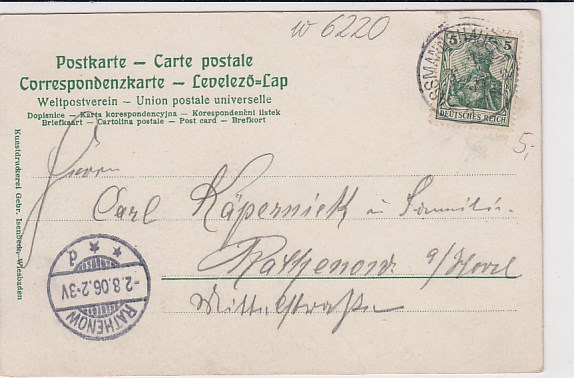 w 6220
Postkarte – Carte postale
Correspondenzkarte – Levelező-Lap
Weltpostverein – Union postale universelle
Dopisnice – Karta korespondencyjna – Korespondenční listek
Briefkaart – Cartolina postale – Post card – Brefkort
5 5
DEUTSCHES REICH
SSMANN
5,-
Herrn
Carl Käpernick u Familie.
Rathenow a/Havel
Mittelstraße
d
-2.8.06.2-3V
RATHENOW
Kunstdruckerei Gebr. Isenbeck, Wiesbaden